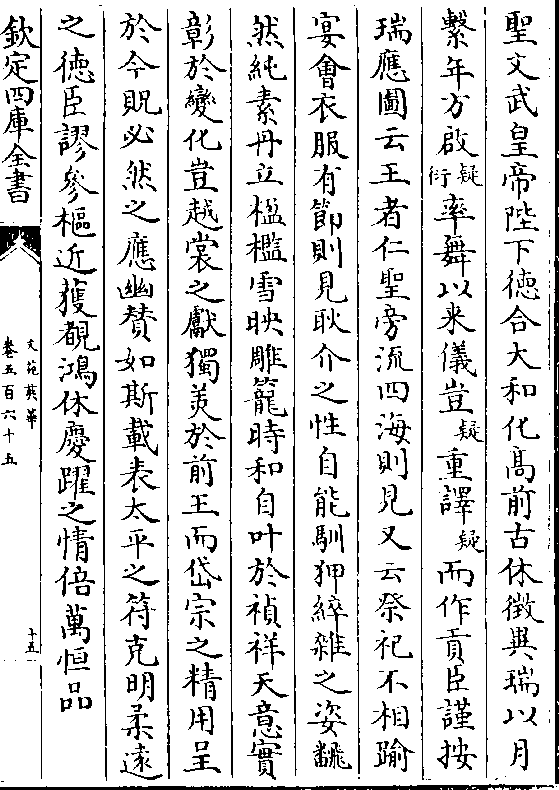 聖文武皇帝陛下德合大和化髙前古休徴與瑞以月
繫年方啟疑衍率舞以来儀豈疑重譯疑而作貢臣謹按
瑞應圖云王者仁聖旁流四海則見又云祭祀不相踰
宴㑹衣服有節則見耿介之性自能馴狎綷雜之姿飜
然純素丹立楹檻雪映雕籠時和自叶於禎祥天意實
彰於變化豈越裳之獻獨美於前王而岱宗之精用呈
於今貺必然之應幽賛如斯載表太平之符克明柔逺
之徳臣謬參樞近獲覩鴻休慶躍之情倍萬恒品
欽定四庫全書
文苑英華
卷五百六十五
十五